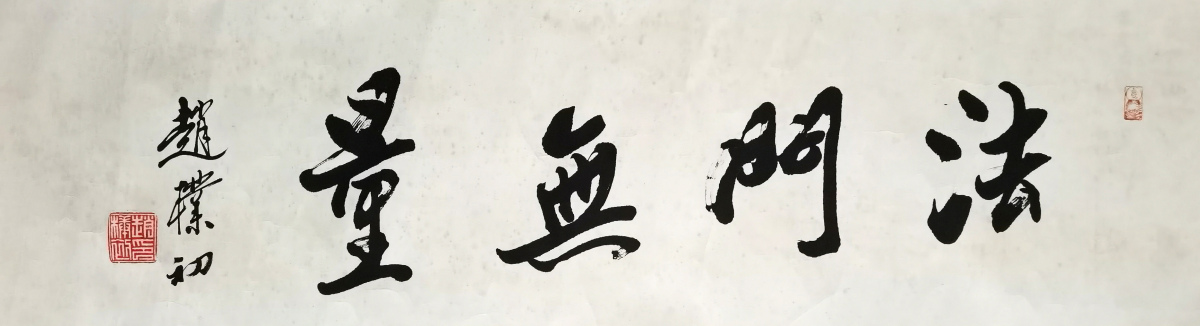 法門無量
趙樸初